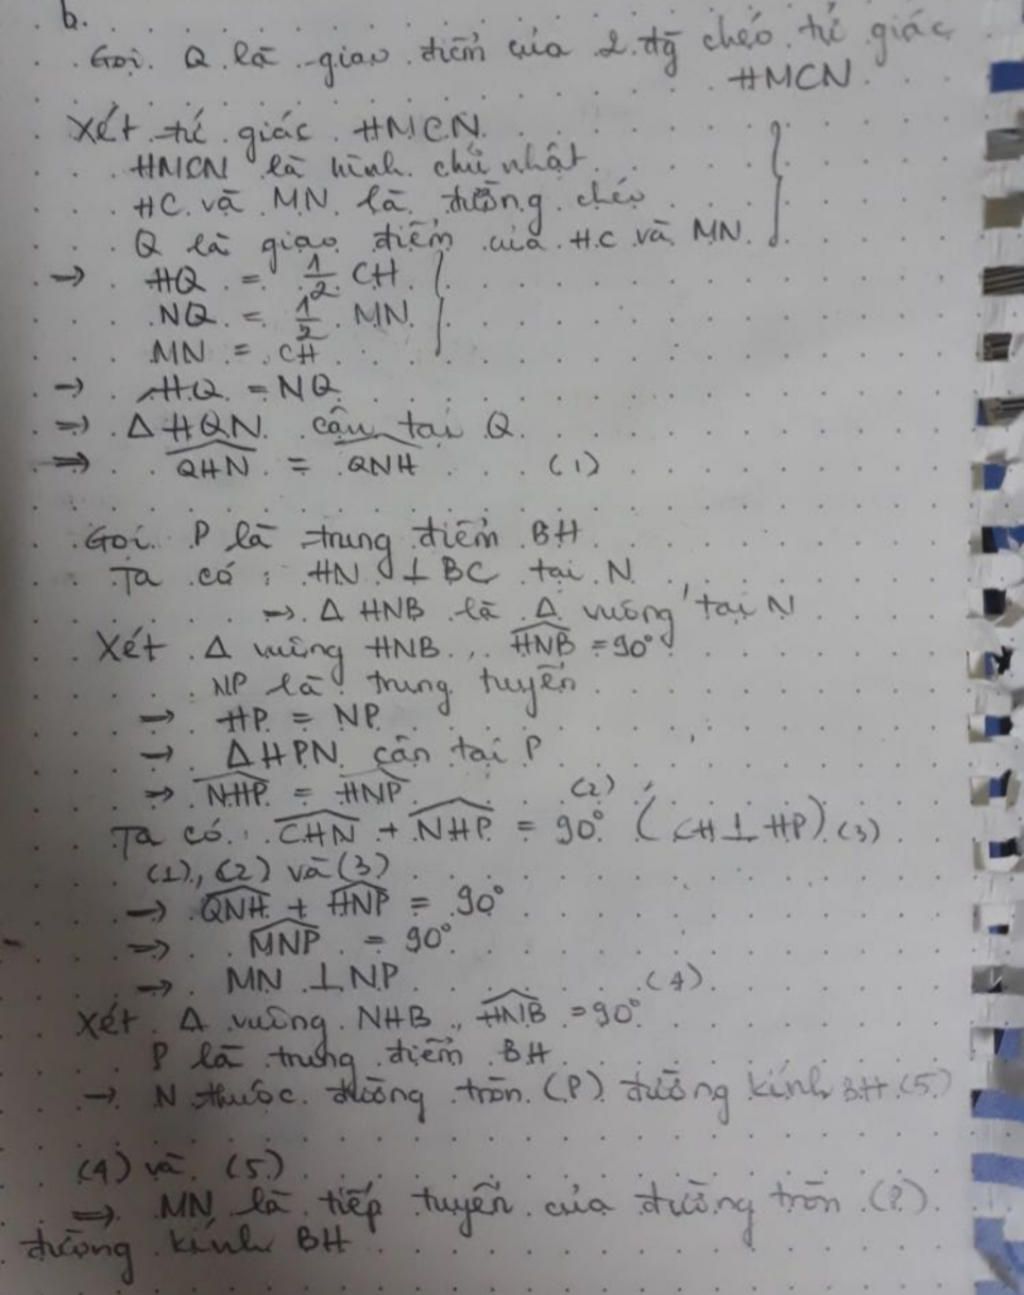 b.
Gọi Q là giao điểm của 2 đg chéo tứ giác
HMCN
Xét tứ giác HMCN
HMCN là hình chữ nhật
HC và MN là đường chéo
Q là giao điểm của HC và MN
→ HQ = 1/2 CH
NQ = 1/2 MN
MN = CH
→ HQ = NQ
→ Δ HQN cân tại Q
→ \widehat{QHN} = \widehat{QNH} (1)
Gọi P là trung điểm BH
Ta có : HN ⊥ BC tại N
→ Δ HNB là Δ vuông tại N
Xét Δ vuông HNB, \widehat{HNB} = 90°
NP là trung tuyến
→ HP = NP
→ Δ HPN cân tại P
→ \widehat{NHP} = \widehat{HNP} (2)
Ta có : \widehat{CHN} + \widehat{NHP} = 90° (CH ⊥ HP) (3)
(1), (2) và (3)
→ \widehat{QNH} + \widehat{HNP} = 90°
→ \widehat{MNP} = 90°
→ MN ⊥ NP (4)
Xét Δ vuông NHB, \widehat{HNB} = 90°
P là trung điểm BH
→ N thuộc đường tròn (P) đường kính BH (5)
(4) và (5)
→ MN là tiếp tuyến của đường tròn (P)
đường kính BH